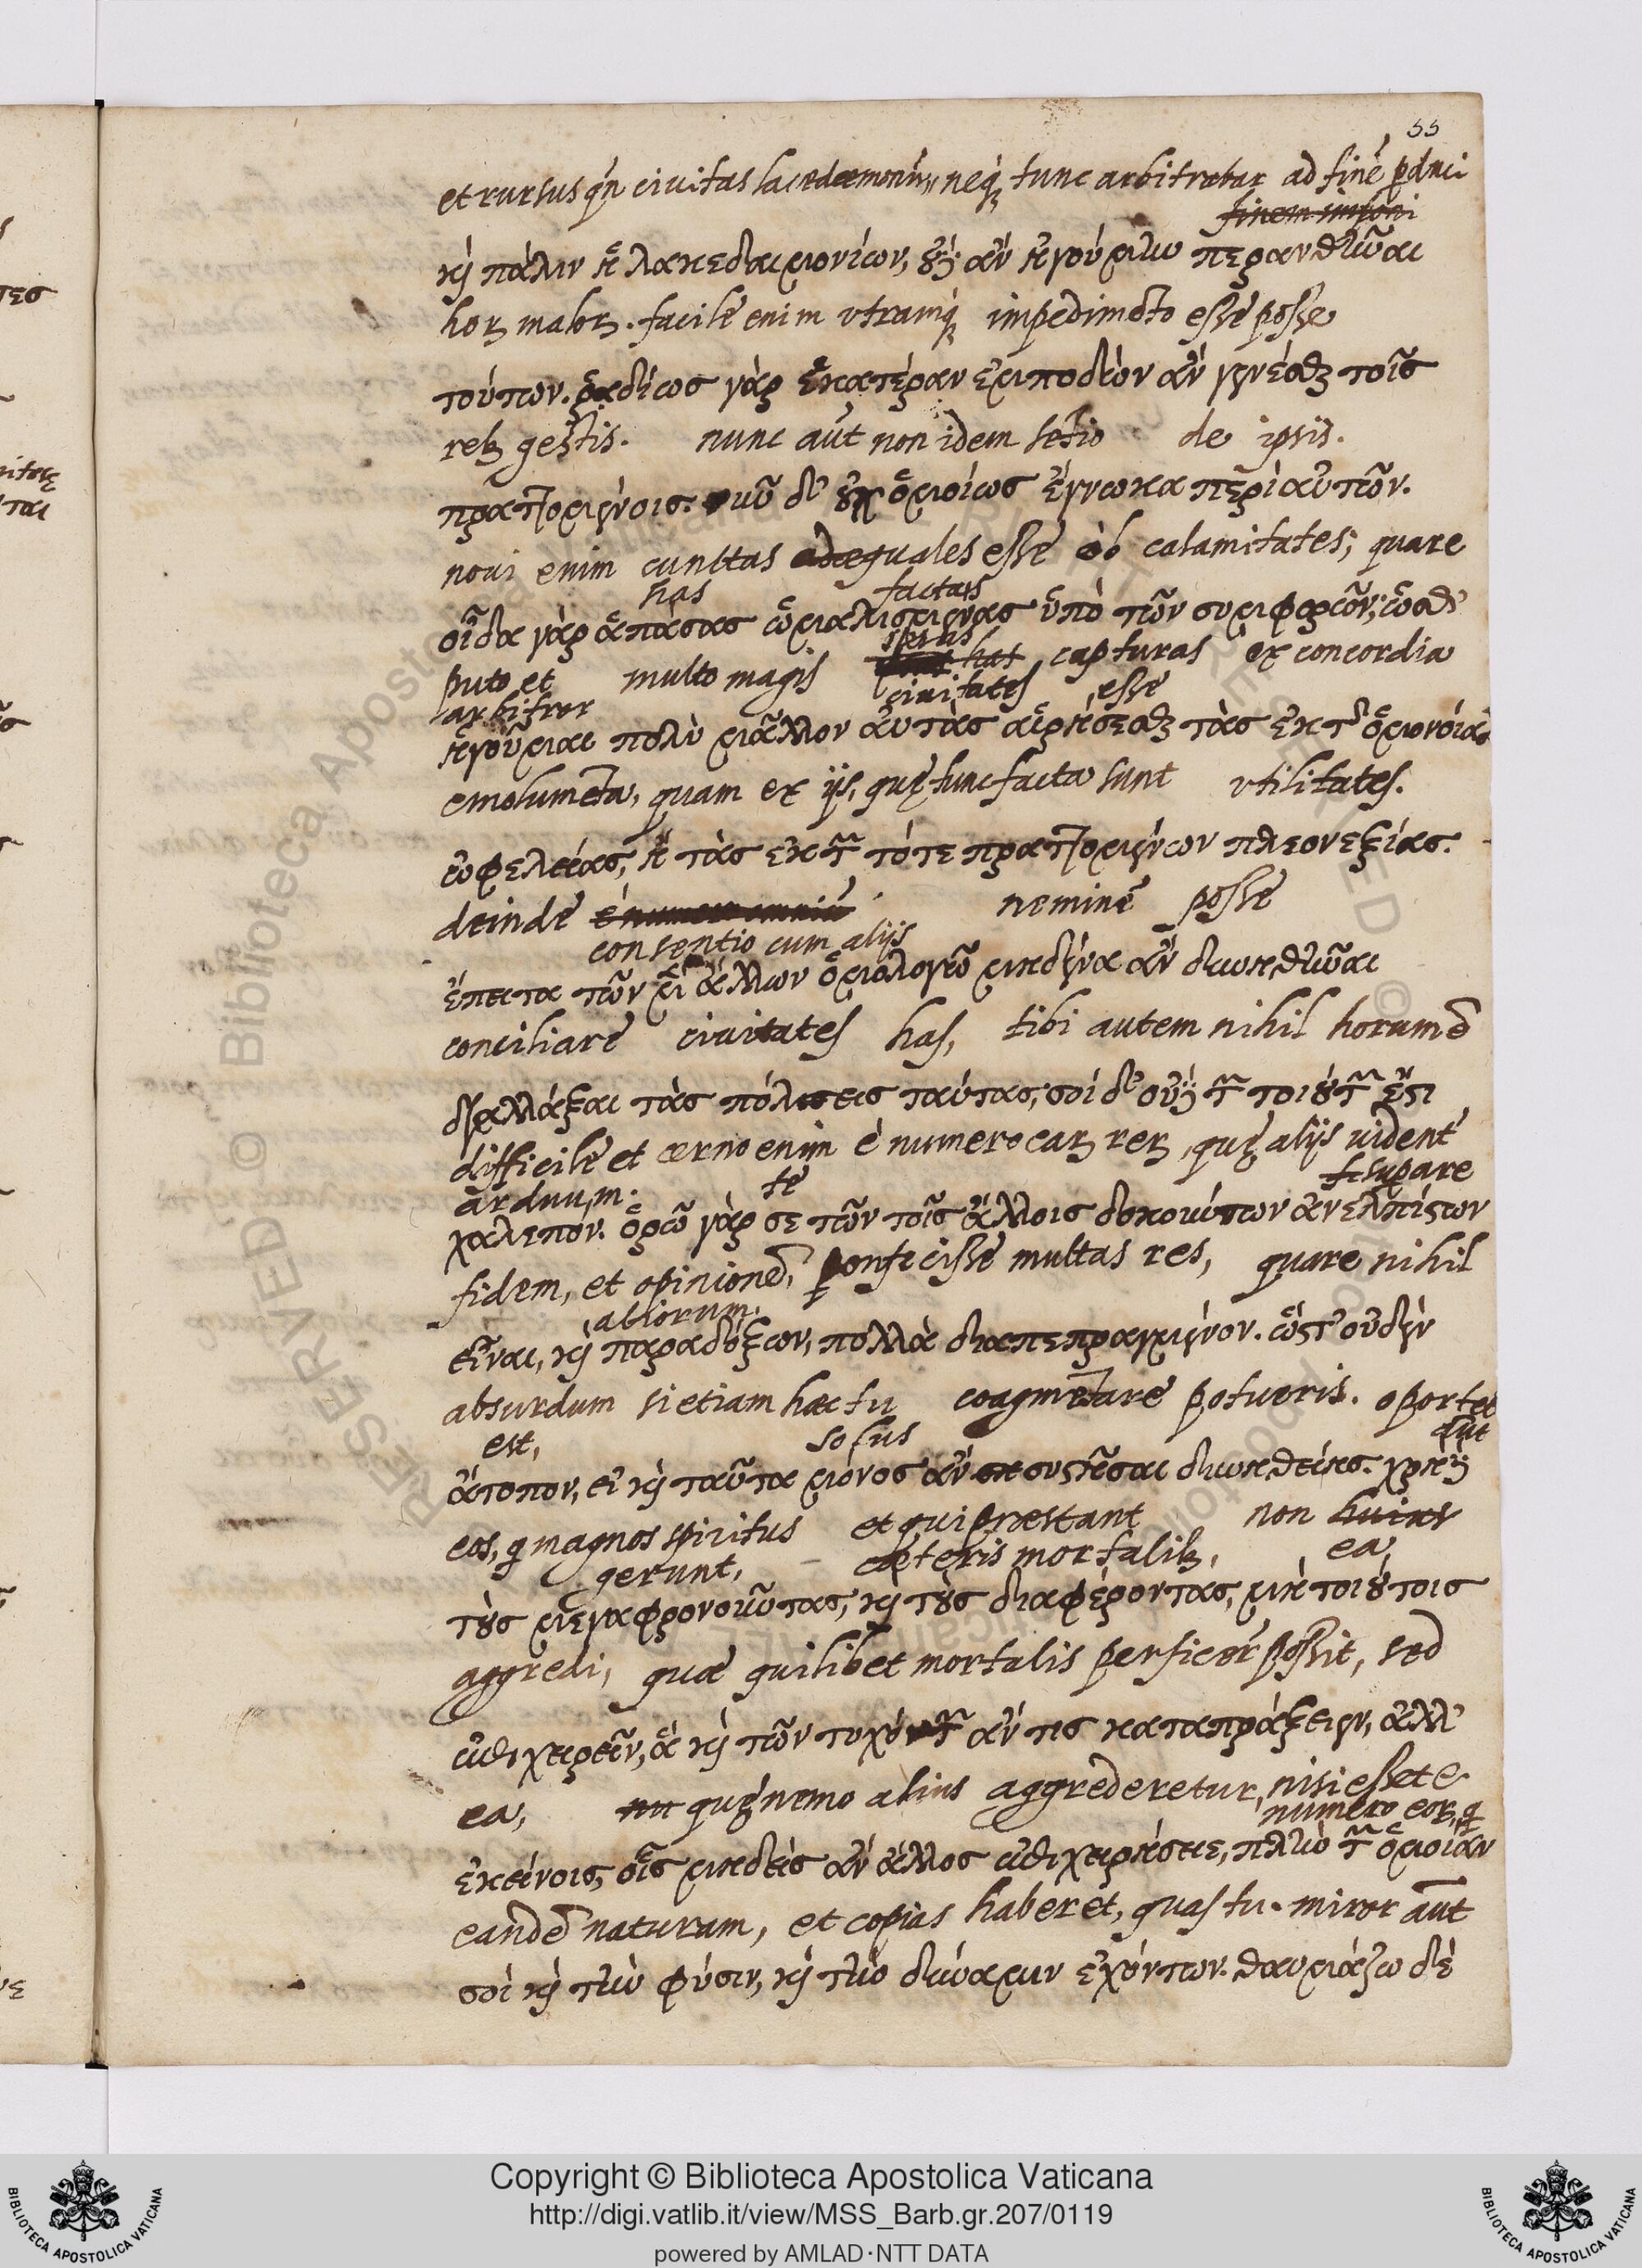 55
et rursus qn̄ civitas lacedæmoniū, neq; tunc arbitrabar ad finē p̄duci
finem imponi
καὶ πάλιν ἡ λακεδαιμονίων, οὐδ' ἂν ἡγούμην περανθῆναι
hoꝝ maloꝝ. facile enim utramq; impedimēto esse posse
τούτων. ῥαδίως γὰρ ἑκατέραν ἐμποδὼν ἂν γενέσθαι τοῖς
reb; gestis. nunc aūt non idem sētio de ipsis.
πραττομένοις. νῦν δ' οὐχ ὁμοίως ἔγνωκα περὶ αὐτῶν.
novi enim cunctas adæquales esse ob calamitates; quare
has factas
οἶδα γὰρ ἁπάσας ὡμαλισμένας ὑπὸ τῶν συμφορῶν, ὥσθ'
ipsas
puto et multo magis has capturas ex concordia
arbitror civitates esse
ἡγοῦμαι πολὺ μᾶλλον αὐτὰς αἱρήσεσθαι τὰς ἐκ τῆς ὁμονοίας
emolumēta, quam ex ijs, quę tunc facta sunt utilitates.
ὠφελείας, ἢ τὰς ἐκ τῶν τότε πραττομένων πλεονεξίας.
deinde è numero omniū neminē posse
consentio cum alijs
ἔπειτα τῶν μὲν ἄλλων ὁμολογῶ μηδένα ἂν δυνηθῆναι
conciliare civitates has, tibi autem nihil horum ē
διαλλάξαι τὰς πόλεις ταύτας, σοὶ δ' οὐδὲν τῶν τοιούτων ἐστὶ
difficile et cerno enim è numero eaꝝ reꝝ, quę alijs vident̄
arduum. te superare
χαλεπόν. ὁρῶ γάρ σε τῶν τοῖς ἄλλοις δοκούντων ἀνελπίστων
fidem, et opinionē, confecisse multas res, quare nihil
aliorum,
εἶναι, καὶ παραδόξων, πολλὰ διαπεπραγμένον. ὥστ' οὐδὲν
absurdum si etiam hæc tu coagmētare potueris. oportet
est, solus aūt
ἄτοπον, εἰ καὶ ταῦτα μόνος ἂν συστῆσαι δυνηθείης. χρὴ δὲ
eos, q magnos spiritus et qui præstant non huius
gerunt, cæteris mortalib;, ea
τοὺς μεγαφρονοῦντας, καὶ τοὺς διαφέροντας, μὴ τοιούτοις
aggredi, quæ quilibet mortalis perficere possit, sed
ἐπιχειρεῖν, ἃ καὶ τῶν τυχόντων ἄν τις καταπράξειεν, ἀλλ'
ea, quę nemo alius aggrederetur, nisi esset e
numero eoꝝ, q
ἐκείνοις, οἷς μηδεὶς ἂν ἄλλος ἐπιχειρήσειε, πλὴν τῶν ὁμοίαν
eandē naturam, et copias haberet, quas tu. miror aūt
σοὶ καὶ τὴν φύσιν, καὶ τὴν δύναμιν ἐχόντων. θαυμάζω δὲ
Copyright © Biblioteca Apostolica Vaticana
http://digi.vatlib.it/view/MSS_Barb.gr.207/0119
powered by AMLAD·NTT DATA
BIBLIOTECA APOSTOLICA VATICANA
BIBLIOTECA APOSTOLICA VATICANA